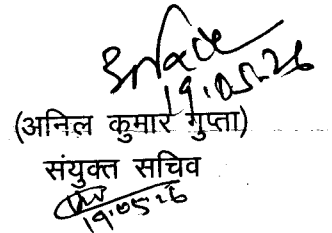 19.05.26
(अनिल कुमार गुप्ता)
संयुक्त सचिव
19.05.26